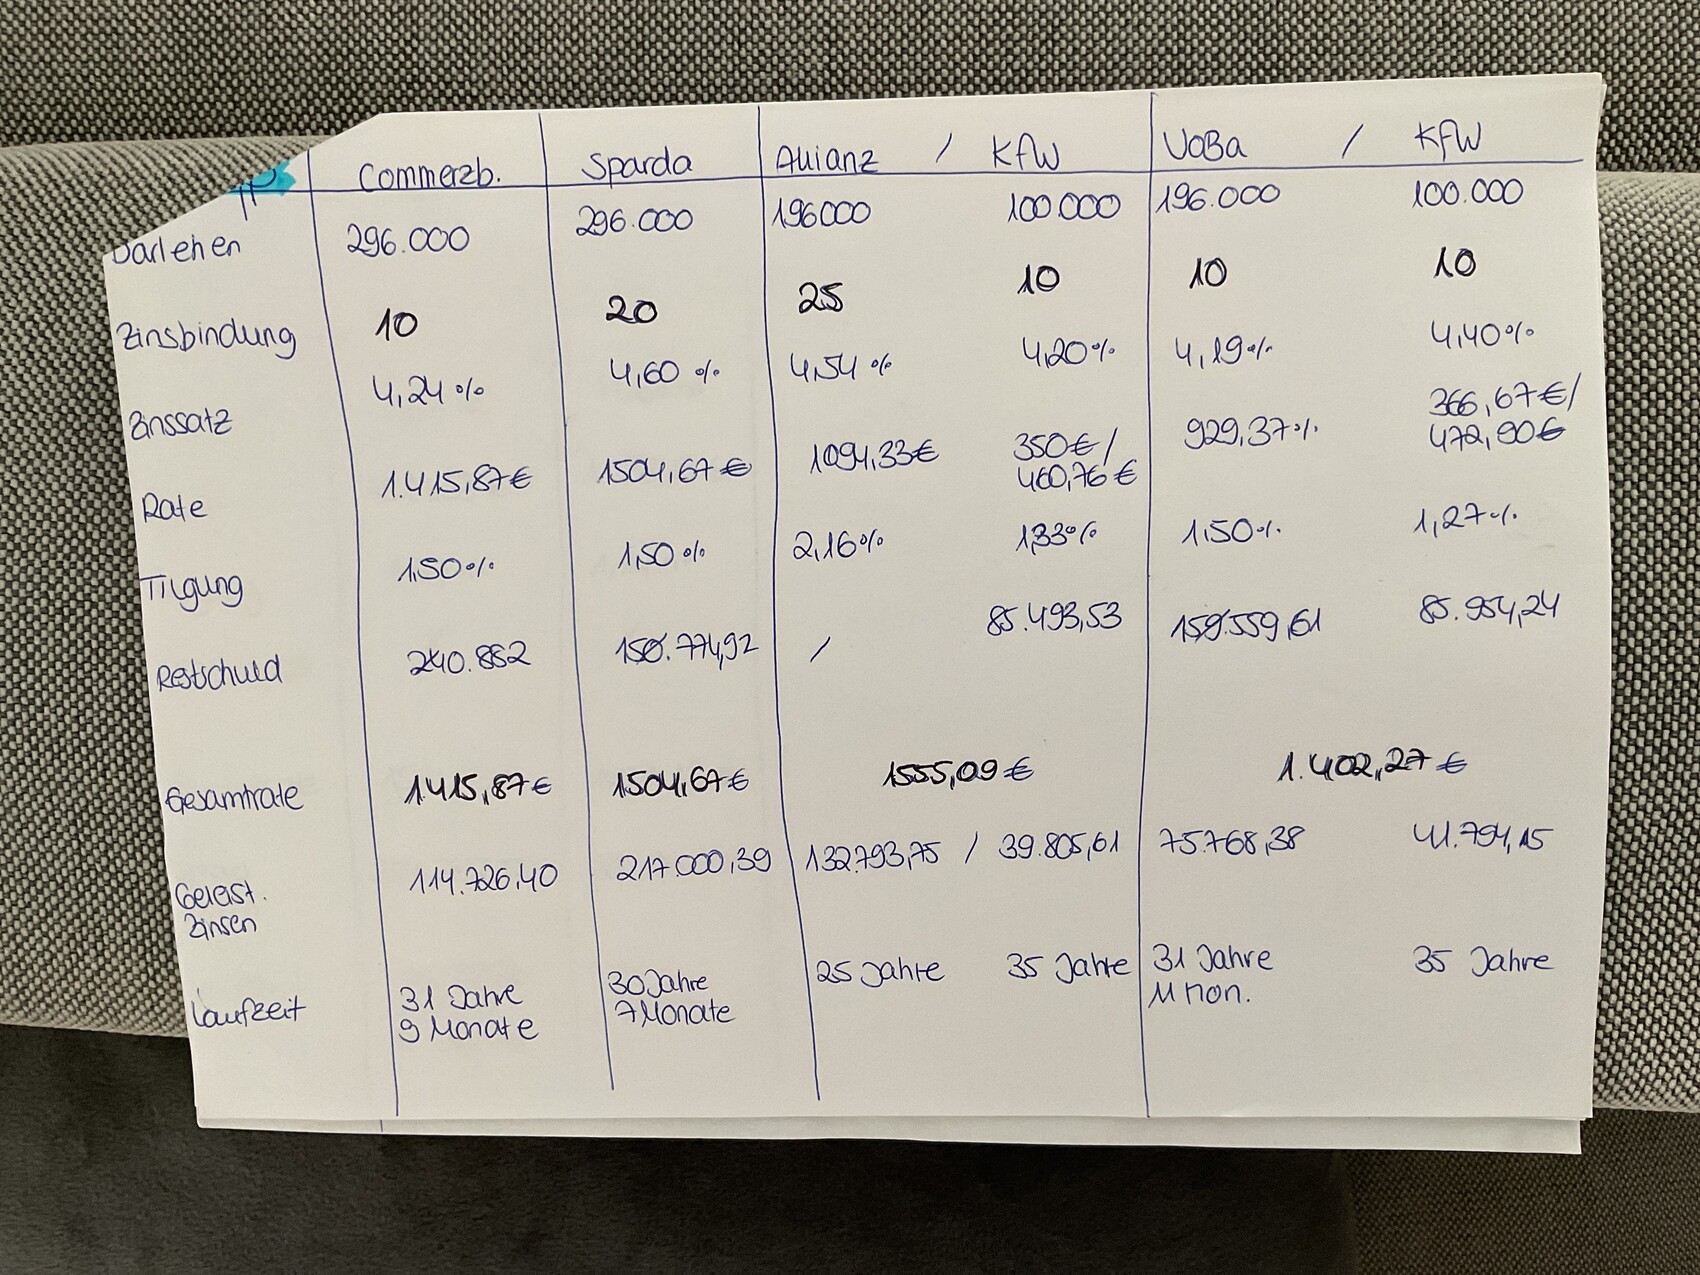 Commerzb. Sparda Allianz / KfW VoBa / KfW
Darlehen 296.000 296.000 196000 100.000 196.000 100.000
Zinsbindung 10 20 25 10 10 10
Zinssatz 4,24% 4,60 % 4,54 % 4,20% 4,19% 4,40%
Rate 1.415,87€ 1504,67€ 1094,33€ 350€/ 929,37% 366,67€/
460,76€ 472,90€
Tilgung 1,50% 1,50% 2,16% 1,33% 1,50% 1,27%
Restschuld 240.882 150.774,92 / 85.493,53 159.559,61 85.954,24
Gesamtrate 1.415,87€ 1504,67€ 1555,09€ 1.402,27€
Geleist. 114.726,40 217.000,39 132.793,75 / 39.805,61 75.768,38 41.794,15
Zinsen
Laufzeit 31 Jahre 30 Jahre 25 Jahre 35 Jahre 31 Jahre 35 Jahre
9 Monate 7 Monate 11 Mon.